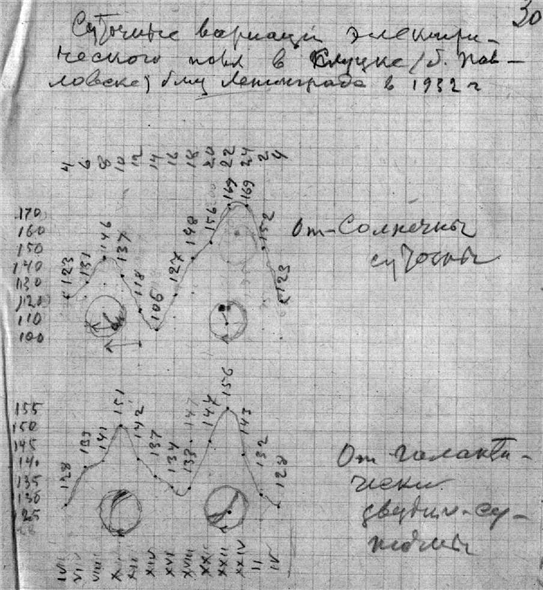 30
Суточные вариации электри-
ческого поля в Слуцке (б. Пав-
ловске) близ Ленинграда в 1932 г
4 6 8 10 12 14 16 18 20 22 24 2 4
170
160
150
140
130
120
110
100
123 131 146 137 118 106 127 148 156 169 169 152 123
От-Солнечны
суточны
155
150
145
140
135
130
125
128 139 141 151 142 137 134 133 147 147 156 143 132 128
От галакти-
чески
звездны-су-
точны
IV VI VIII X XII XIV XVI XVIII XX XXII XXIV II IV